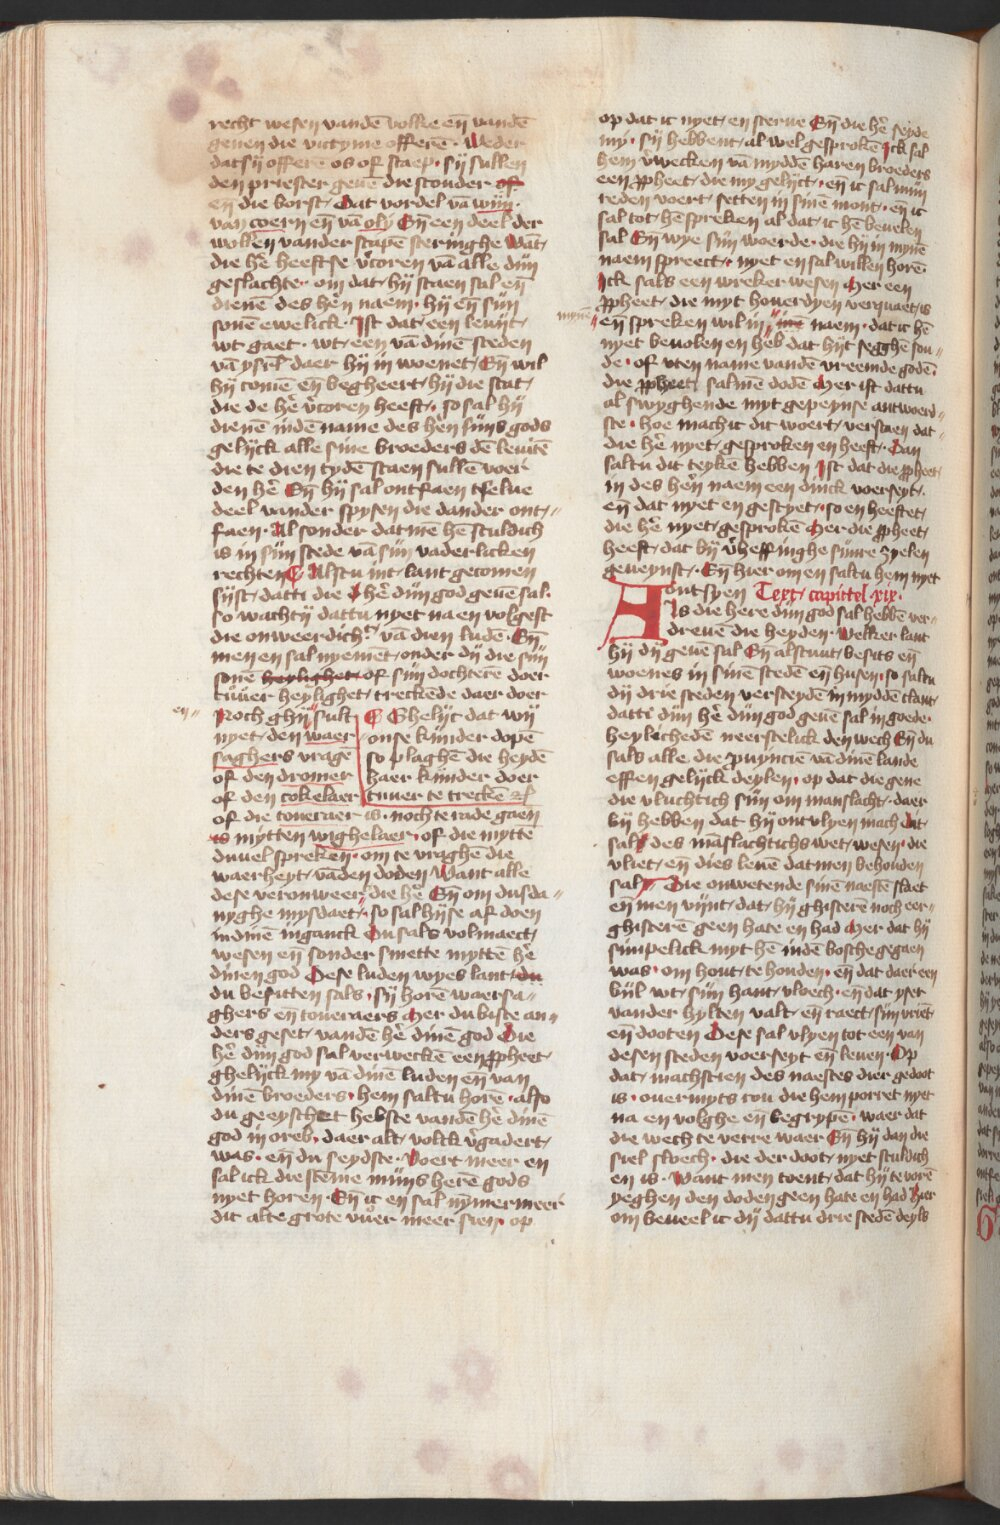 recht wesen vandē volke en̄ vandē
genen die victyme offerē · Weder
dat sij offerē os of scaep · sij sullen
den priester geuē die scouder of
en̄ die borst / Dat vordel vā wijn ·
van coern en̄ vā oly En̄ een deel der
wollen vander scapē sceringhe Wāt /
die hē heeftse v̄coren vā alle dijn
geslachte · om dat / hij staen sal en̄
dienē des hēn naem · hij en̄ sijn
sonē ewelick · Ist dat / een leuijt /
wt gaet · wt / een vā dinē steden
vā ysrl̄ daer hij in woenet / En̄ wil
hij comē en̄ begheert / hij die stat /
die de hē v̄coren heeft / · so sal hij
dienē indē name des hēn sijns gods
gelijck alle sine broeders dē leuitē
die te dien tydē staen sullē voer
den hē En̄ hij sal ontfaen tselue
deel vander spysen die dander ont /
faen · Al sonder dat mē hē sculdich
is in sijn stede vā sijn vaderlicken
rechten Alstu int / lant gecomen
sijst / datti die hē dijn god geuē sal ·
so wachtij dattu nyet na en volgest
die onweerdich⁠t vā dien ludē · En̄
men en sal nyemēt / onder dij die sijn
sonē heylighet of sijn dochterē doer
tvuer heylighet / treckēde daer doer
en Noch ghij sult
nyet / den waer
saghers vragē
of den dromer
of den cokelaer
Ghelijc dat wij
onse kijnder dopē
so plaghē die heydē
haer kijnder doer
tvuer te treckē
of die toueraer is · noch te rade gaen
is mytten wighelaer · of die mytte
duuel spreken · om te vraghē die
waerheyt / vāden doden Want alle
dese veronweer die hē En̄ om dusda
nyghe mysdaet / so sal hijse af doen
indinē inganck Du sals volmaect /
wesen en̄ sonder smette myttē hē
dinen god Dese luden wyes lant / du
du besitten sals · sij horē waersa
ghers en̄ toueraers Mer du biste an
ders geset / vandē hē dinē god Die
hē dijn god sal verweckē een ꝓpheet /
ghelijck my vā dinē luden en̄ van
dinē broeders · hem saltu horē · also
du geeyschet hebste vandē hē dinē
god in oreb · daer alt / volck v̄gadert /
was · en̄ du seydste · Voert meer en
sal ick die stēme mijns herē gods
nyet horen · En̄ ic en sal nymermeer
dit alte grote vuer meer sien · op
op dat ic nyet / en sterue En̄ die hē seyde
my · sij hebbent / al wel gesprokē Ick sal
hem v̄wecken vā myddē haren broeders
een ꝓpheet / die my gelijct / · en̄ ic sal mijn
reden voert / setten in sinē mont / · en̄ ic
sal tot / hē spreken al dat / ic hē beuelen
sal En̄ wye sijn woerde · die hij in mynē
naem spreect / · nyet en sal willen horē
Ick sals een wreker wesen Mer een
ꝓpheet / die myt houerdyen verquaet / is
mynē en̄ spreken wil in naem · dat ic hē
nyet beuolen en heb dat hijt segghē sou
de · of vten name vandē vreemde godē
die ꝓpheet / salmē dodē Mer ist dattu
al swyghende myt gepeynse antwoerd
ste · hoe mach ic dit woert / verstaen dat
die hē nyet / gesproken en heeft / · Dan
saltu dit teykē hebben Ist dat die ꝓpheet
in des hēn naem een dinck voerseyt / ·
en̄ dat nyet en gesciet / · so en heeftet /
die hē nyet / gesprokē Mer die ꝓpheet /
heeft / dat bij v̄heffinghe sijnre zyelen
geueynst / · En̄ hier om en saltu hem nyet
ontsyen Text / capittel · xix ·
Als die here dijn god sal hebbē ver
dreuē die heyden · Welker lant
hij dij geuē sal En̄ alstuut / besits en̄
woenes in sinē stedē en̄ husen · so saltu
dij drie steden versceydē in myddē tlant /
datti dijn hē dijn god geuē sal in goede
heylichedē neerstelick den wech En̄ du
sals alle die ꝓuincien vā dinē lande
effen gelijck deylen · op dat die gene
die vluchtich sijn om manslacht / · daer
bij hebben dat hij ontvlyen mach Dit /
sal des māslachtichs wet / wesen · die
vliet / en̄ dies leuē datmen behouden
sal Die onwetende sinē naestē slaet
en̄ men vijnt / dat / hij ghisterē noch eer
ghisterē geen hate en had Mer dat hij
simpelick myt hē indē bosche gegaen
was · om hout / te houden · en̄ dat daer een
bijl wt / sijn hant / vloech · en̄ dat yser
vander hylten valt / en̄ raect / sijn vrient
en̄ dooten Dese sal vlyen tot een van
desen steden voerseyt en̄ leuen · Op
dat / machscien des naestes dier gedoot
is · ouermyts rou die hem porret nyet
na en volghe en̄ begrypē · waer dat
die wech te verre waer En̄ hij dan die
siel sloech · die der doot / nyet sculdich
en is · Want men toent / dat hij te vorē
yeghen den doden geen hate en had Hier
om beueel ic dij dattu drie stedē deyls